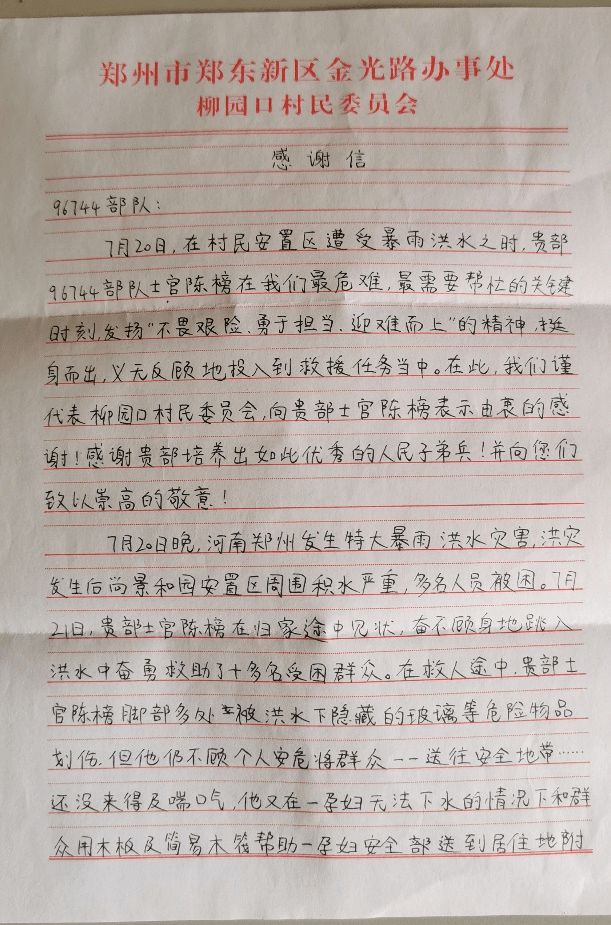 郑州市郑东新区金光路办事处
柳园口村民委员会
感谢信
96744部队:
7月20日,在村民安置区遭受暴雨洪水之时,贵部
96744部队士官陈榜在我们最危难,最需要帮忙的关键
时刻,发扬“不畏艰险、勇于担当、迎难而上”的精神,挺
身而出,义无反顾地投入到救援任务当中。在此,我们谨
代表柳园口村民委员会,向贵部士官陈榜表示由衷的感
谢!感谢贵部培养出如此优秀的人民子弟兵!并向您们
致以崇高的敬意!
7月20日晚,河南郑州发生特大暴雨洪水灾害,洪灾
发生后尚景和园安置区周围积水严重,多名人员被困。7月
21日,贵部士官陈榜在归家途中见状,奋不顾身地跳入
洪水中奋勇救助了十多名受困群众。在救人途中,贵部士
官陈榜脚部多处被洪水下隐藏的玻璃等危险物品
划伤.但他仍不顾个人安危将群众一一送往安全地带……
还没来得及喘口气,他又在一孕妇无法下水的情况下和群
众用木板及简易木筏帮助一孕妇安全部送到居住地附